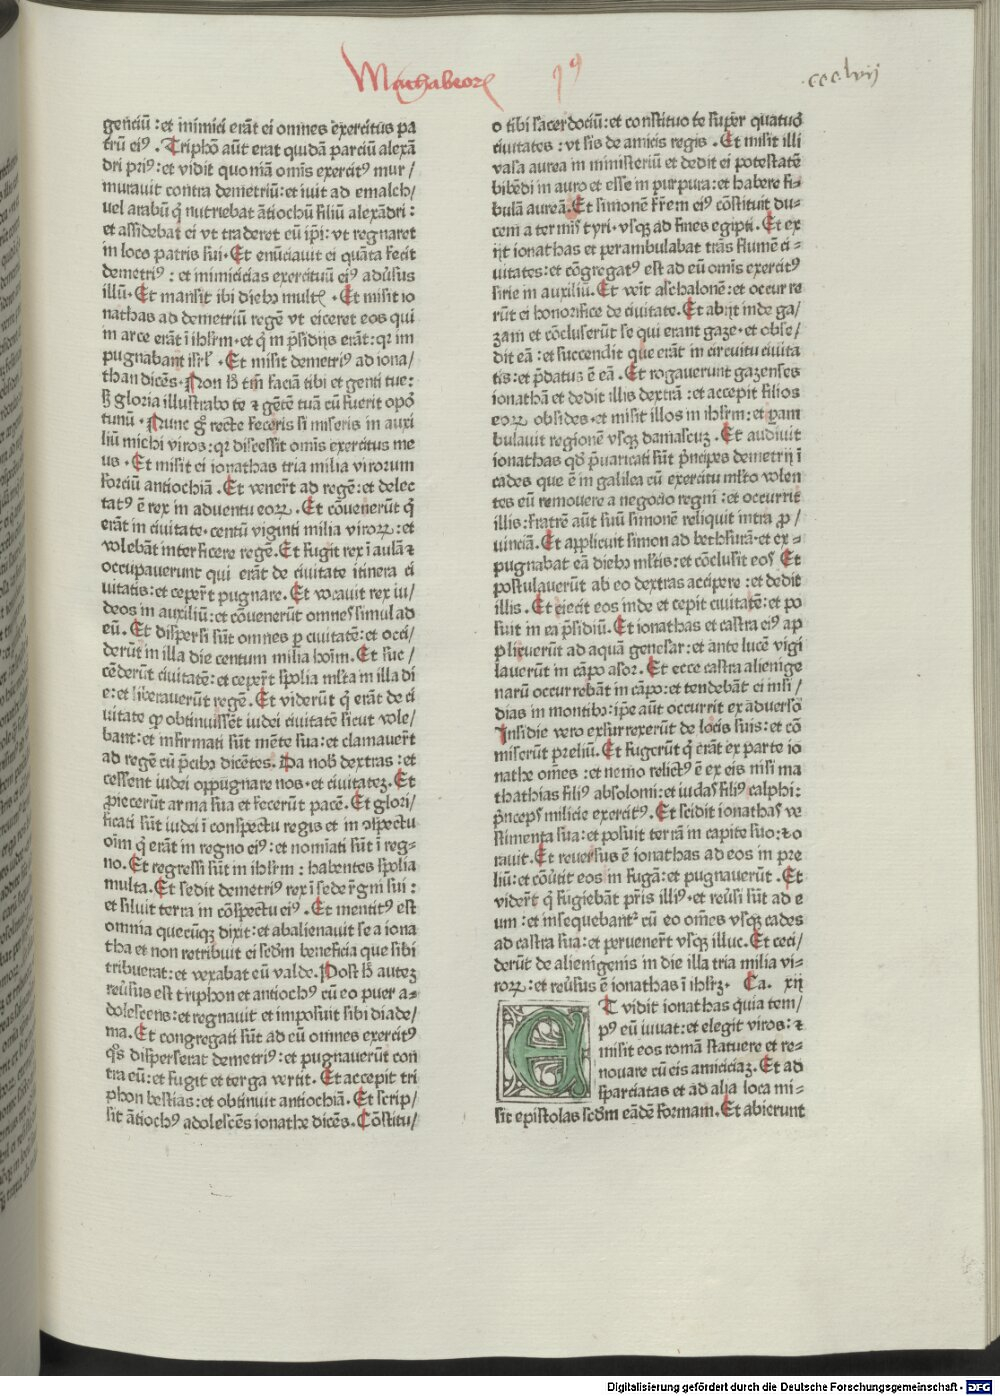 Machabeorꝝ jꝰ
ccclvij
genciū : et inimici erāt ei omnes exercitus pa
trū eiꝰ . Triphō aūt erat quidā parciū alexā
dri priꝰ : et vidit quoniā omīs exercitꝰ mur /
muravit contra demetriū : et ivit ad emalch /
uel arabū q̄ nutriebat ātiochū filiū alexādri :
et assidebat ei vt traderet eū ip̄i : vt regnaret
in loco patris sui . Et enūciavit ei quāta fecit
demetriꝰ : et inimicicias exercituū eiꝰ adūsus
illū . Et mansit ibi diebꝰ multꝭ . Et misit io
nathas ad demetriū regē vt eiceret eos qui
in arce erāt ī ihrl̄m · et q̄ in p̄sidijs erāt : qr im
pugnabant isrl̄ . Et misit demetriꝰ ad iona /
than dicēs . Non h̄ tm̄ faciā tibi et genti tue :
s̄ gloria illustrabo te ⁊ gētē tuā cū fuerit opor̄
tunū . Nunc gͦ recte feceris si miseris in auxi
liū michi viros : qr discessit omīs exercitus me
us . Et misit ei ionathas tria milia virorum
forciū antiochiā . Et venert̄ ad regē : et delec
tatꝰ ē rex in adventu eoꝝ . Et cōvenerūt q̄
erāt in civitate · centū viginti milia viroꝝ : et
volebāt interficere regē . Et fugit rex ī aulā ⁊
occupaverunt qui erāt de civitate itinera ci
vitatis : et cepert̄ pugnare . Et vocavit rex iu /
deos in auxiliū : et cōvenerūt omnes simul ad
eū . Et dispersi sūt omnes ꝑ civitatē : et occi /
derūt in illa die centum milia hoīm . Et suc /
cēderūt civitatē : et cepert̄ spolia ml̄ta in illa di
e : et liberaverūt regē . Et viderūt q̄ erāt de ci
vitate ꝙ obtinuissēt iudei civitatē sicut vole /
bant : et infirmati sūt mēte sua : et clamavert̄
ad regē cū p̄cibꝫ dicētes . Da nob̄ dextras : et
cessent iudei oppugnare nos · et civitatez . Et
ꝓiecerūt arma sua et fecerūt pacē . Et glori /
ficati sūt iudei ī conspectu regis et in ꝯspectu
oīm q̄ erāt in regno eiꝰ : et nomīati sūt ī reg-
no . Et regressi sūt in ihrl̄m : habentes spolia
multa . Et sedit demetriꝰ rex ī sede rḡni sui :
et siluit terra in cōspectu eiꝰ . Et mentitꝰ est
omnia quecūqꝫ dixit : et abalienavit se a iona
tha et non retribuit ei scdm̄ beneficia que sibi
tribuerat : et vexabat eū valde . Post h̄ autez
reūsus est triphon et antiochꝰ cū eo puer a-
dolescens : et regnavit et imposuit sibi diade /
ma . Et congregati sūt ad eū omnes exercitꝰ
qͦs disperserat demetriꝰ : et pugnaverūt con
tra eū : et fugit et terga vertit . Et accepit tri
phon bestias : et obtinuit antiochiā . Et scrip /
sit ātiochꝰ adolescēs ionathe dicēs . Cōstitu /
o tibi sacerdociū : et constituo te super quatuor̄
civitates : vt sis de amicis regis . Et misit illi
vasa aurea in ministeriū et dedit ei potestatē
bibēdi in auro et esse in purpura : et habere fi-
bulā aureā . Et simonē fr̄em eiꝰ cōstituit du-
cem a termīs tyri · vsqꝫ ad fines egipti . Et ex
ijt ionathas et perambulabat trās flumē ci -
vitates : et cōgregatꝰ est ad eū omīs exercitꝰ
sirie in auxiliū . Et veīt aschalonē : et occurre
rūt ei honorifice de civitate . Et abijt inde ga /
zam et cōcluserūt se qui erant gaze · et obse /
dit eā : et succendit que erāt in circuitu civita
tis : et p̄datus ē eā . Et rogaverunt gazenses
ionathā et dedit illis dextrā : et accepit filios
eoꝝ obsides · et misit illos in ihrl̄m : et ꝑam
bulavit regionē vsqꝫ damascuz . Et audivit
ionathas qd̄ p̄varicati sūt p̄ncipes demetrij ī
cades que ē in galilea cū exercitu ml̄to volen
tes eū removere a negocio regni : et occurrit
illis : fratrē aūt suū simonē reliquit intra ꝓ /
vinciā . Et applicuit simon ad bethsurā · et ex -
pugnabat eā diebꝫ ml̄tis : et cōclusit eos Et
postulaverūt ab eo dextras accipere : et dedit
illis . Et eiecit eos inde et cepit civitatē : et po
suit in ea p̄sidiū . Et ionathas et castra eiꝰ ap
plicuerūt ad aquā genesar : et ante lucē vigi
laverūt in cāpo asor . Et ecce castra alienige
narū occurrebāt in cāpo : et tendebāt ei insi /
dias in montibꝫ : ip̄e aūt occurrit ex adverso
Insidie vero exsurrexerūt de locis suis : et cō
miserūt preliū . Et fugerūt q̄ erāt ex parte io
nathe om̄es : et nemo relictꝰ ē ex eis nisi ma
thathias filiꝰ absolomi : et iudas filiꝰ calphi :
p̄nceps milicie exercitꝰ . Et scidit ionathas ve
stimenta sua : et posuit terrā in capite suo : ⁊ o
ravit . Et reversus ē ionathas ad eos in pre
liū : et cōvertit eos in fugā : et pugnaverūt . Et
vidert̄ q̄ fugiebāt p̄tis illiꝰ · et reūsi sūt ad e
um : et insequebantʳ cū eo om̄es vsqꝫ cades
ad castra sua : et pervenert̄ vsqꝫ illuc . Et ceci /
derūt de alienigenis in die illa tria milia vi-
roꝝ : et reūsus ē ionathas ī ihrl̄z . Ca. xij
ET vidit ionathas quia tem /
pꝰ eū iuvat : et elegit viros : ⁊
misit eos romā statuere et re-
novare cū eis amiciciaz . Et ad
sparciatas et ad alia loca mi-
sit epistolas scdm̄ eādē formam . Et abierunt
Digitalisierung gefördert durch die Deutsche Forschungsgemeinschaft - DFG